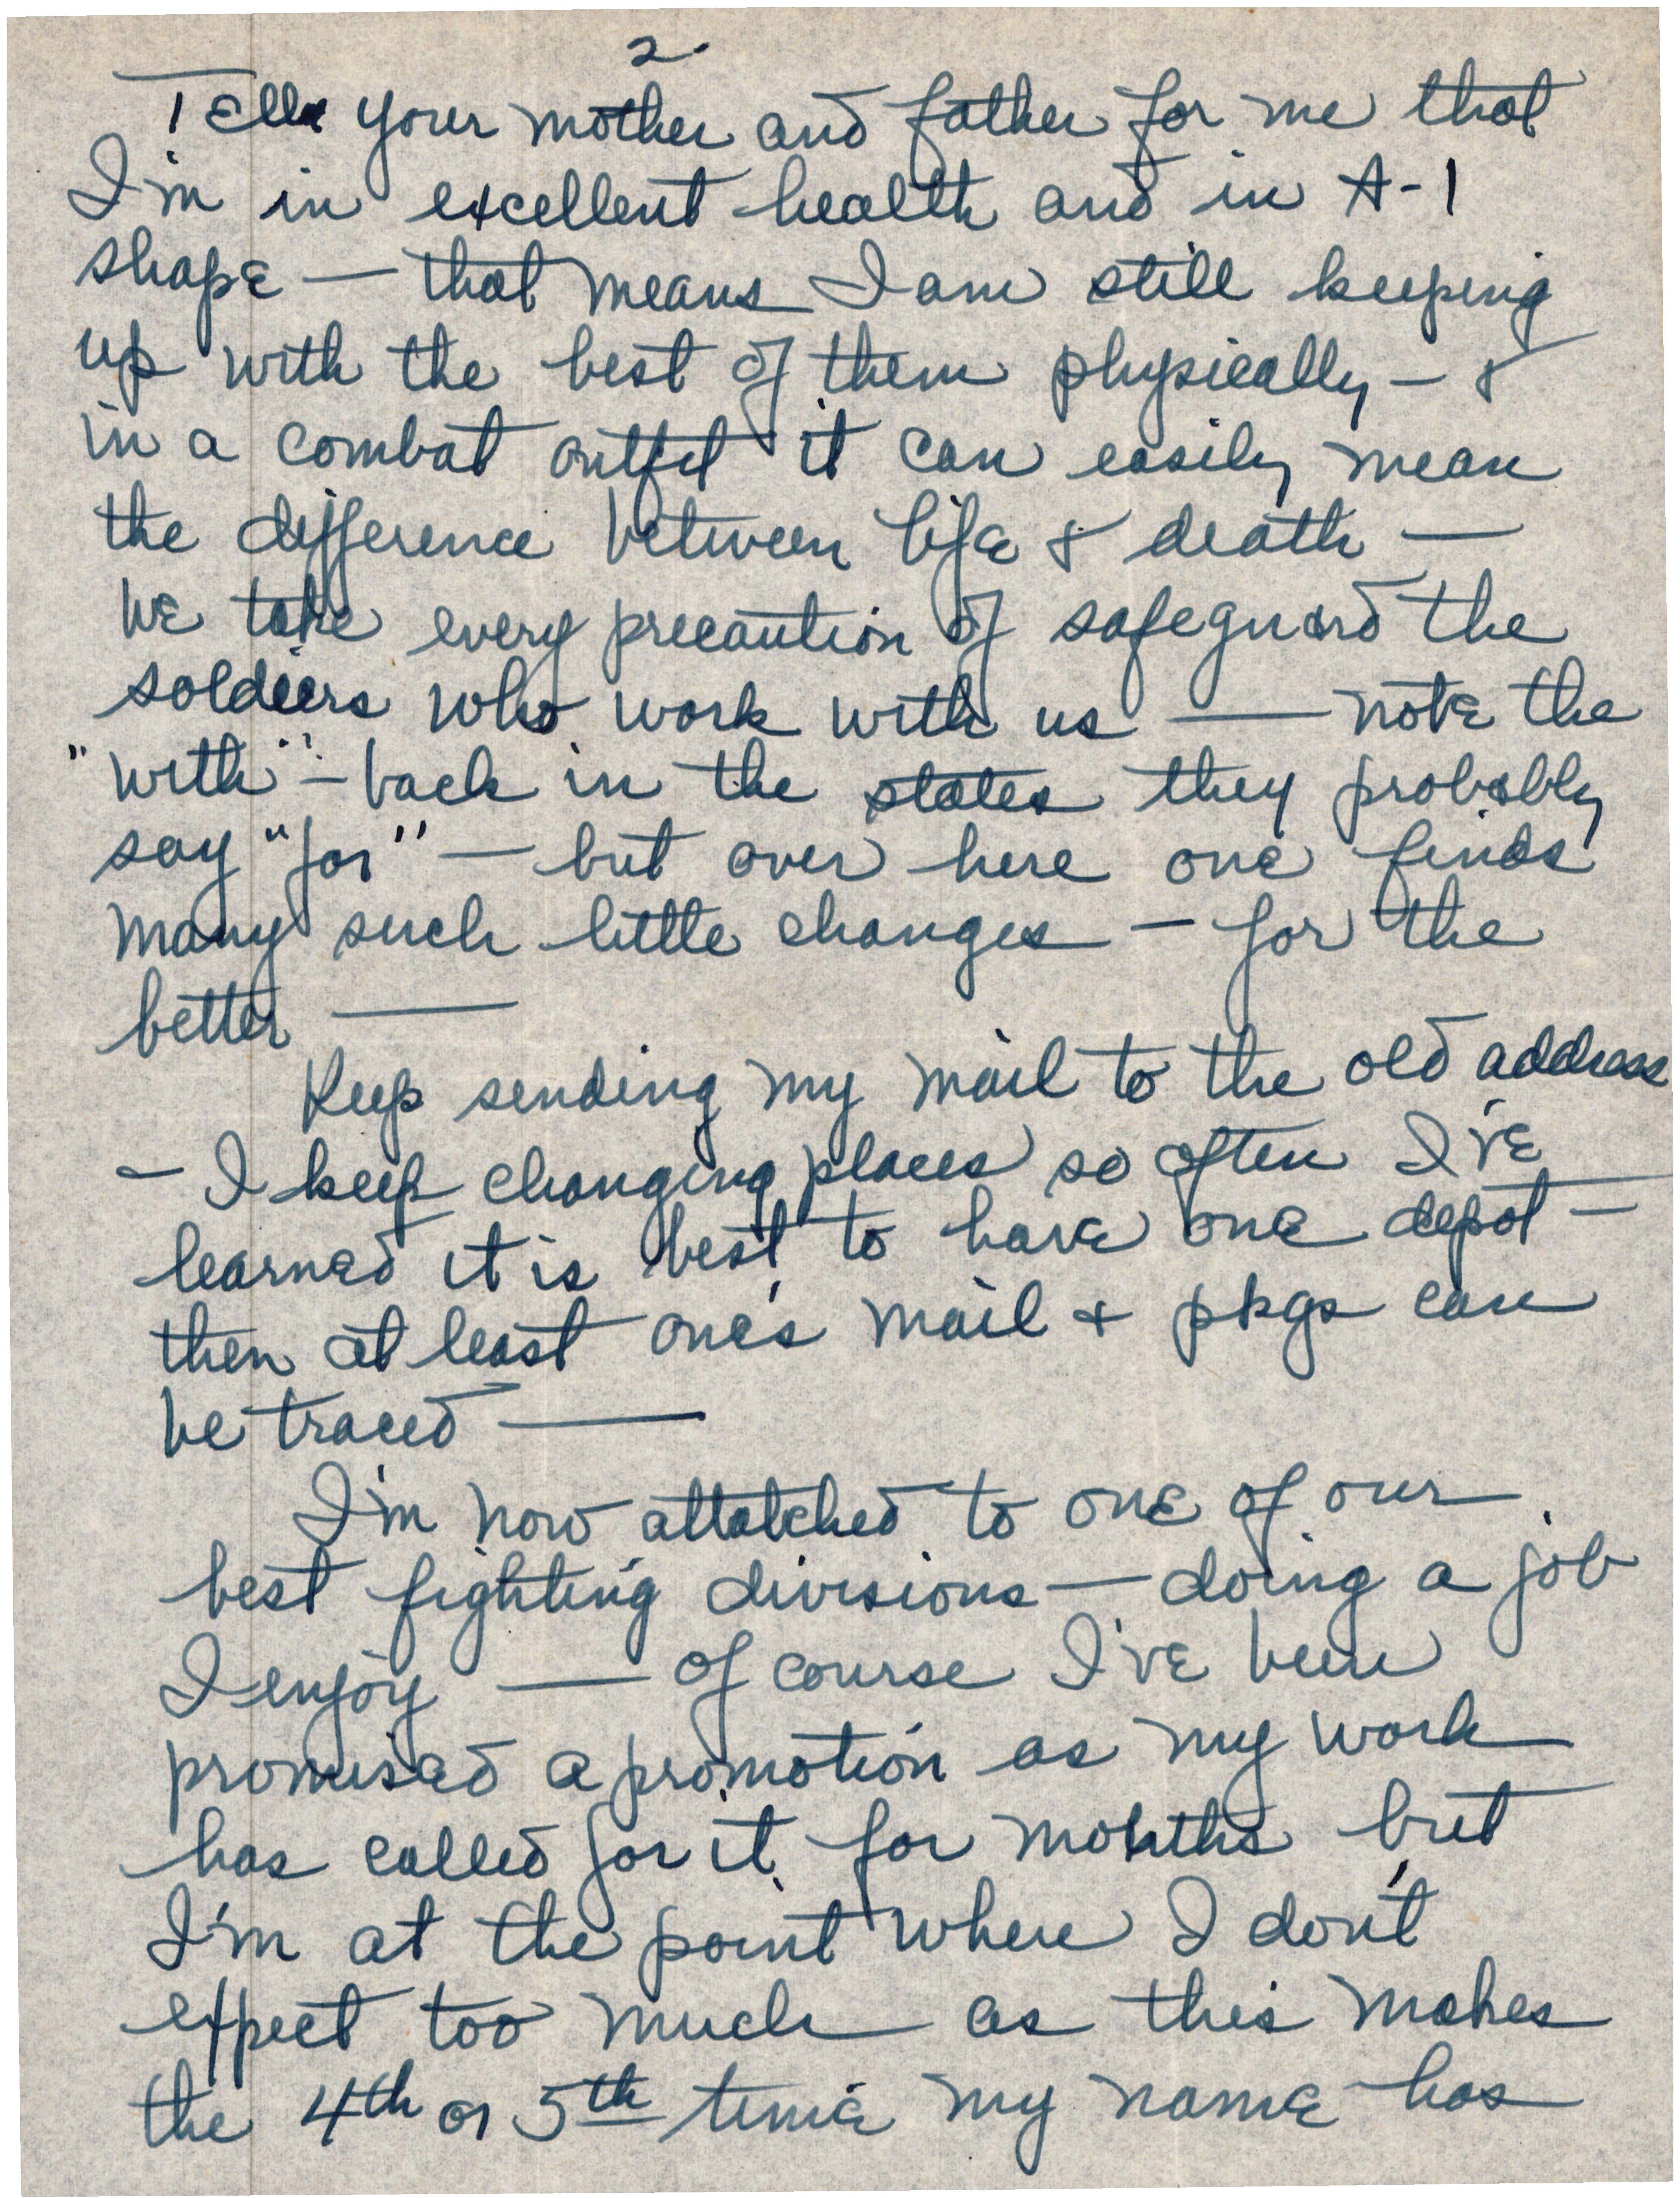 2.
Tell your mother and father for me that
I'm in excellent health and in A-1
shape — that means I am still keeping
up with the best of them physically — &
in a combat outfit it can easily mean
the difference between life & death —
We take every precaution of safeguard the
soldiers who work with us — note the
"with" — back in the states they probably
say "for" — but over here one finds
many such little changes — for the
better —
Keep sending my mail to the old address
— I keep changing places so often I've
learned it is best to have one depot —
then at least one's mail & pkgs can
be traced —
I'm now attatched to one of our
best fighting divisions — doing a job
I enjoy — of course I've been
promised a promotion as my work
has called for it for months but
I'm at the point where I don't
expect too much as this makes
the 4th or 5th time my name has